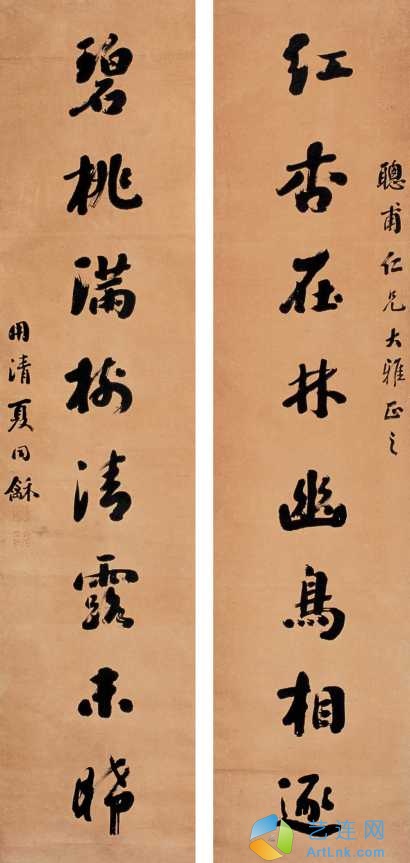 聰甫仁兄大雅正之
紅杏在林幽鳥相逐
碧桃滿樹清露未晞
用清夏同龢
艺连网
ArtLnk.com